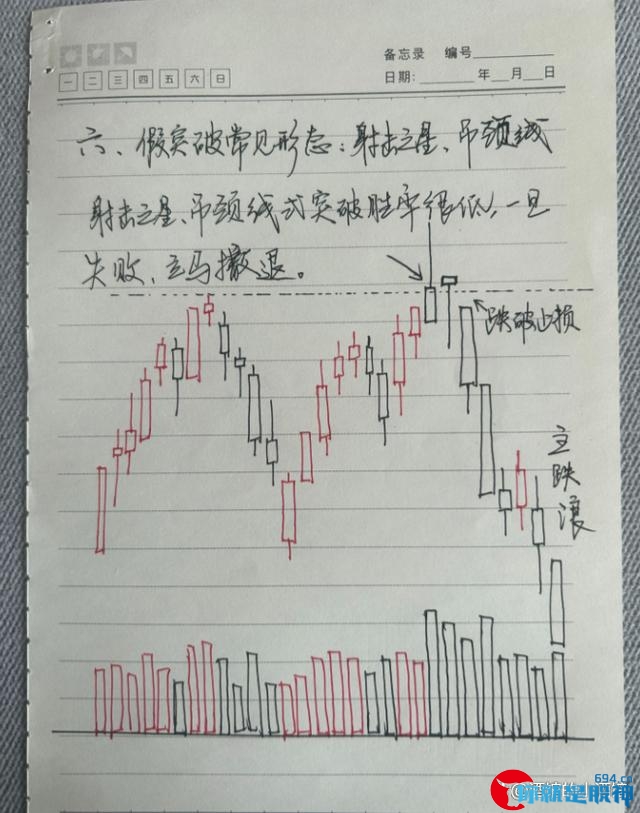 备忘录 编号
一 二 三 四 五 六 日
日期: 年 月 日
六、假突破常见形态：射击之星、吊颈线
射击之星、吊颈线式突破胜率很低，一旦
失败，立马撤退。
跌破止损
主跌浪
694.cn
你就是股神